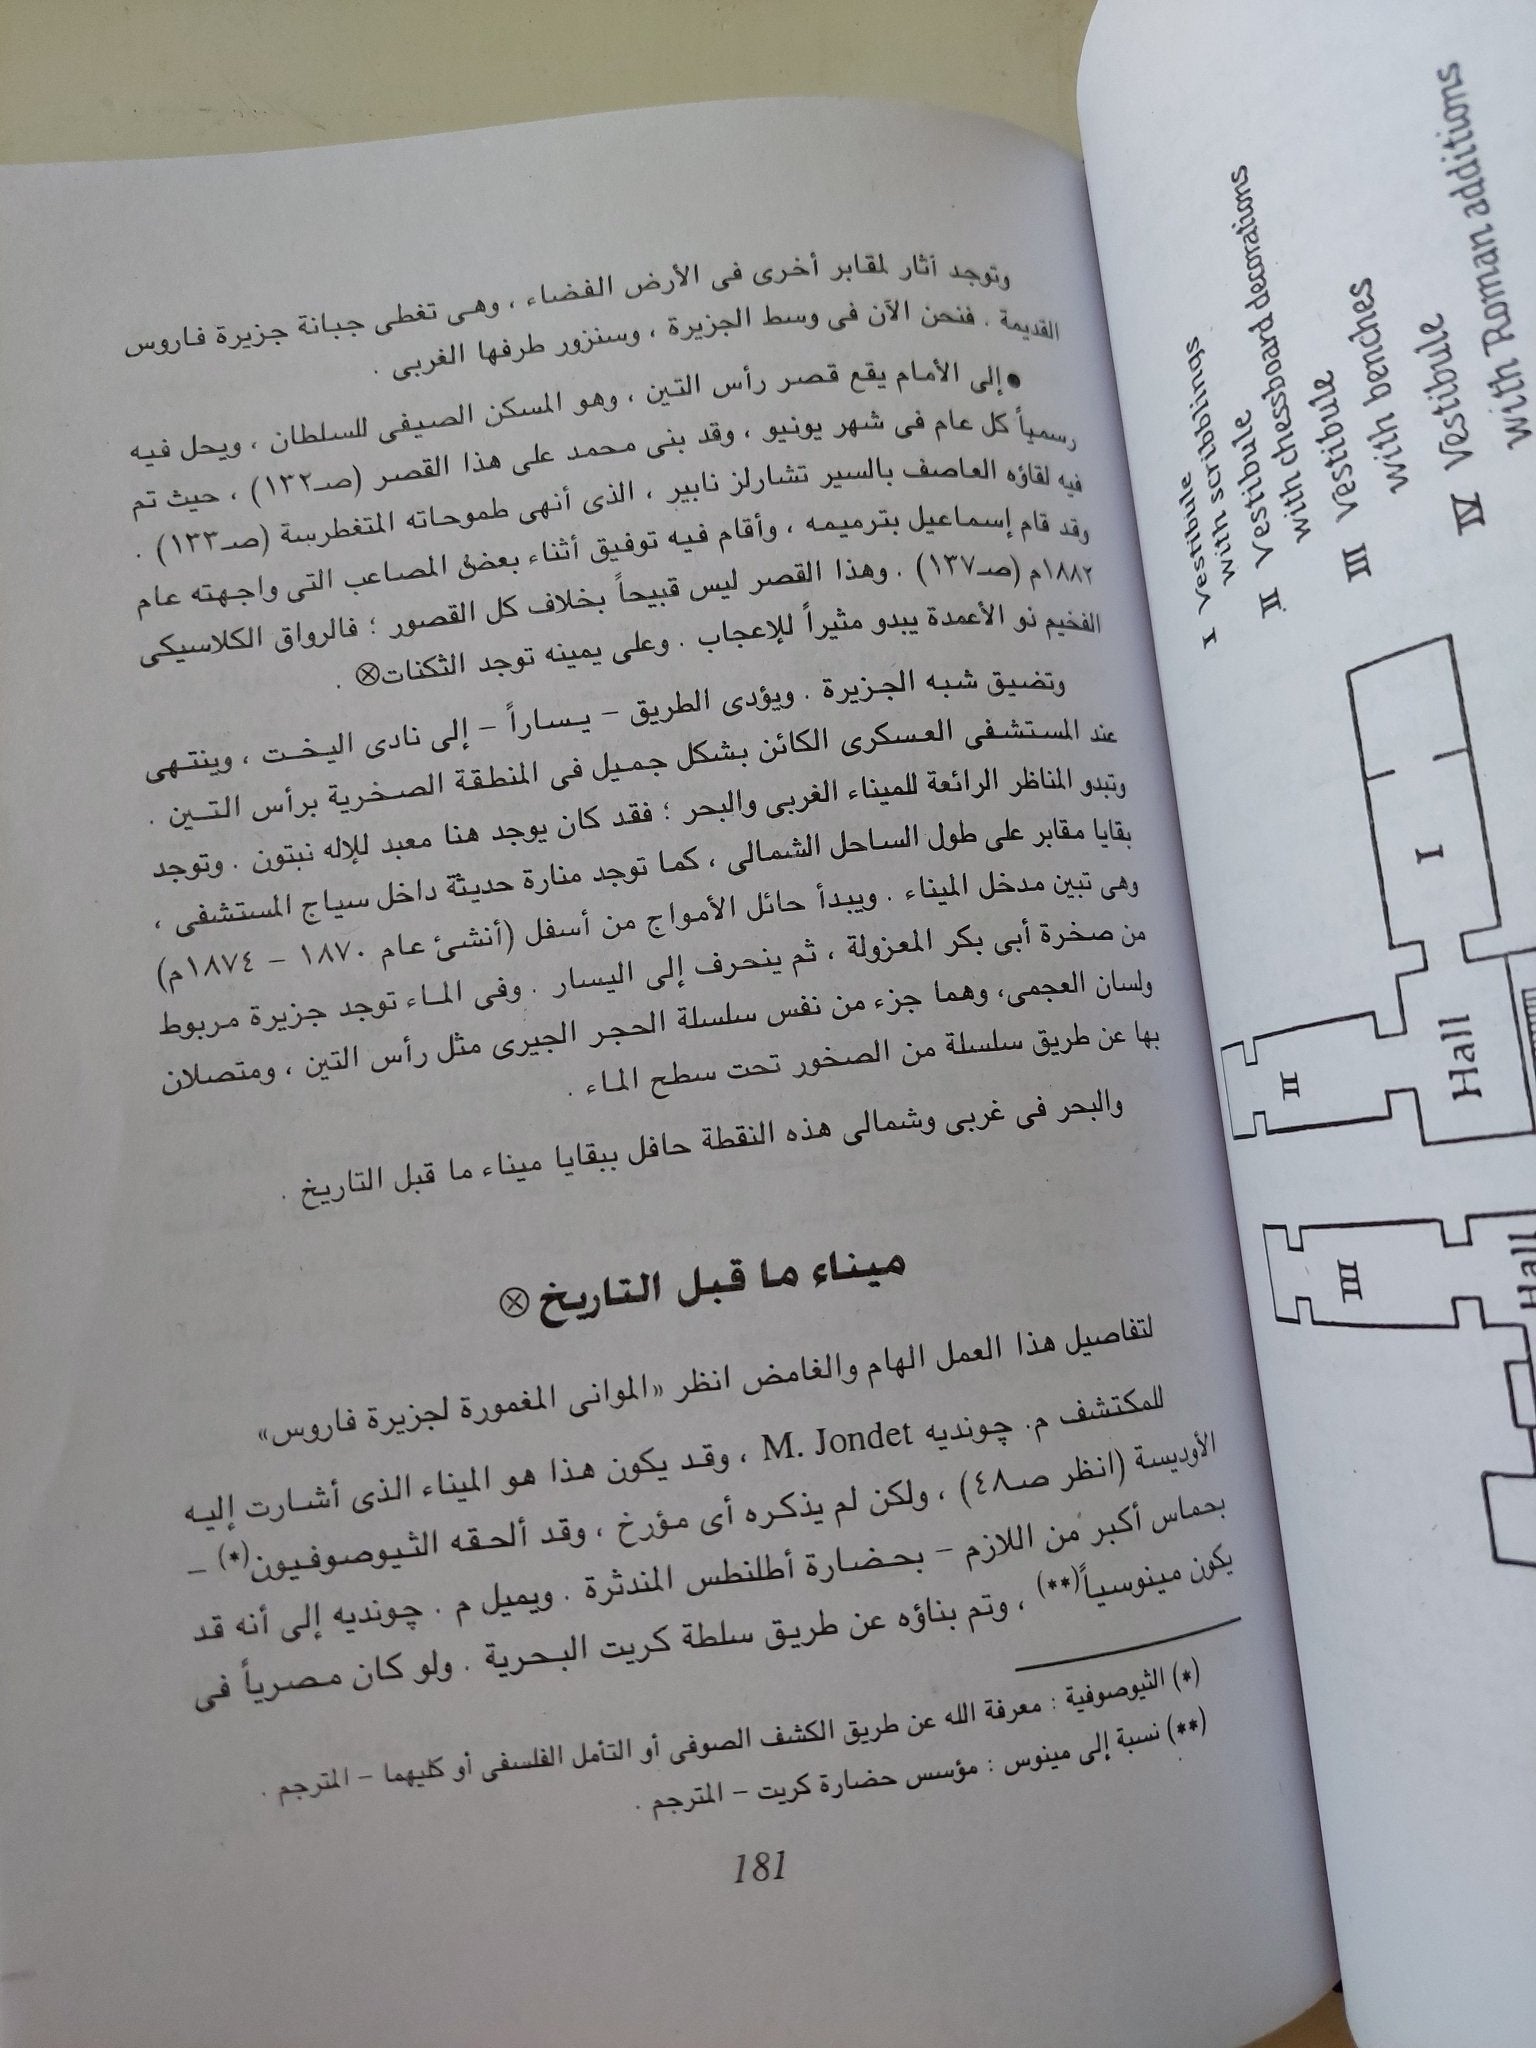 وتوجد آثار لمقابر أخرى فى الأرض الفضاء ، وهى تغطى جبانة جزيرة فاروس
القديمة . فنحن الآن فى وسط الجزيرة ، وسنزور طرفها الغربى .
● إلى الأمام يقع قصر رأس التين ، وهو المسكن الصيفى للسلطان ، ويحل فيه
رسمياً كل عام فى شهر يونيو ، وقد بنى محمد على هذا القصر (صـ١٣٢) ، حيث تم
فيه لقاؤه العاصف بالسير تشارلز نابير ، الذى أنهى طموحاته المتغطرسة (صـ١٣٣) .
وقد قام إسماعيل بترميمه ، وأقام فيه توفيق أثناء بعض المصاعب التى واجهته عام
١٨٨٢م (صـ١٣٧) . وهذا القصر ليس قبيحاً بخلاف كل القصور ؛ فالرواق الكلاسيكى
الفخيم ذو الأعمدة يبدو مثيراً للإعجاب . وعلى يمينه توجد الثكنات⊗ .
وتضيق شبه الجزيرة . ويؤدى الطريق – يساراً – إلى نادى اليخت ، وينتهى
عند المستشفى العسكرى الكائن بشكل جميل فى المنطقة الصخرية برأس التين .
وتبدو المناظر الرائعة للميناء الغربى والبحر ؛ فقد كان يوجد هنا معبد للإله نبتون . وتوجد
بقايا مقابر على طول الساحل الشمالى ، كما توجد منارة حديثة داخل سياج المستشفى ،
وهى تبين مدخل الميناء . ويبدأ حائل الأمواج من أسفل (أنشئ عام ١٨٧٠ – ١٨٧٤م)
من صخرة أبى بكر المعزولة ، ثم ينحرف إلى اليسار . وفى الماء توجد جزيرة مربوط
ولسان العجمى، وهما جزء من نفس سلسلة الحجر الجيرى مثل رأس التين ، ومتصلان
بها عن طريق سلسلة من الصخور تحت سطح الماء .
والبحر فى غربى وشمالى هذه النقطة حافل ببقايا ميناء ما قبل التاريخ .
ميناء ما قبل التاريخ ⊗
لتفاصيل هذا العمل الهام والغامض انظر «الموانى المغمورة لجزيرة فاروس»
للمكتشف م. چونديه M. Jondet ، وقد يكون هذا هو الميناء الذى أشارت إليه
الأوديسة (انظر صـ٤٨) ، ولكن لم يذكره أى مؤرخ ، وقد ألحقه الثيوصوفيون(*) –
بحماس أكبر من اللازم – بحضارة أطلنطس المندثرة . ويميل م . چونديه إلى أنه قد
يكون مينوسياً(**) ، وتم بناؤه عن طريق سلطة كريت البحرية . ولو كان مصرياً فى
(*) الثيوصوفية : معرفة الله عن طريق الكشف الصوفى أو التأمل الفلسفى أو كليهما – المترجم .
(**) نسبة إلى مينوس : مؤسس حضارة كريت – المترجم .
181
I Vestibule
with scribblings
II Vestibule
with chessboard decorations
III Vestibule
with benches
IV Vestibule
with Roman additions
I
II
Hall
III
Hall